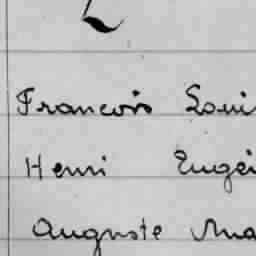 L
Francois Loui
Henri Eugèn
Auguste Ma